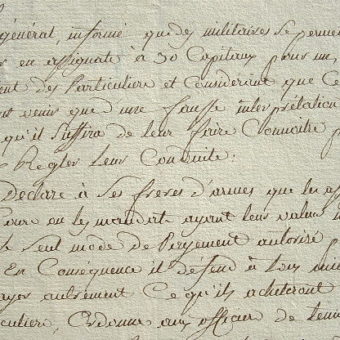 général, informé que des militaires se permet
en assignats à 30 Capitaux pour un,
des Particuliers et Considérant que Ce
venir que d'une fausse interprétation
qu'il suffira de leur faire Connoitre
Régler leur Conduite:
Déclare à ses freres d'armes que les ass
ou les mandats ayant leur valeur
seul mode de Payement autorisé
En Conséquence il défend à tous mi
payer autrement Ce qu'ils acheteront
culiers, Ordonne aux officiers de tenir